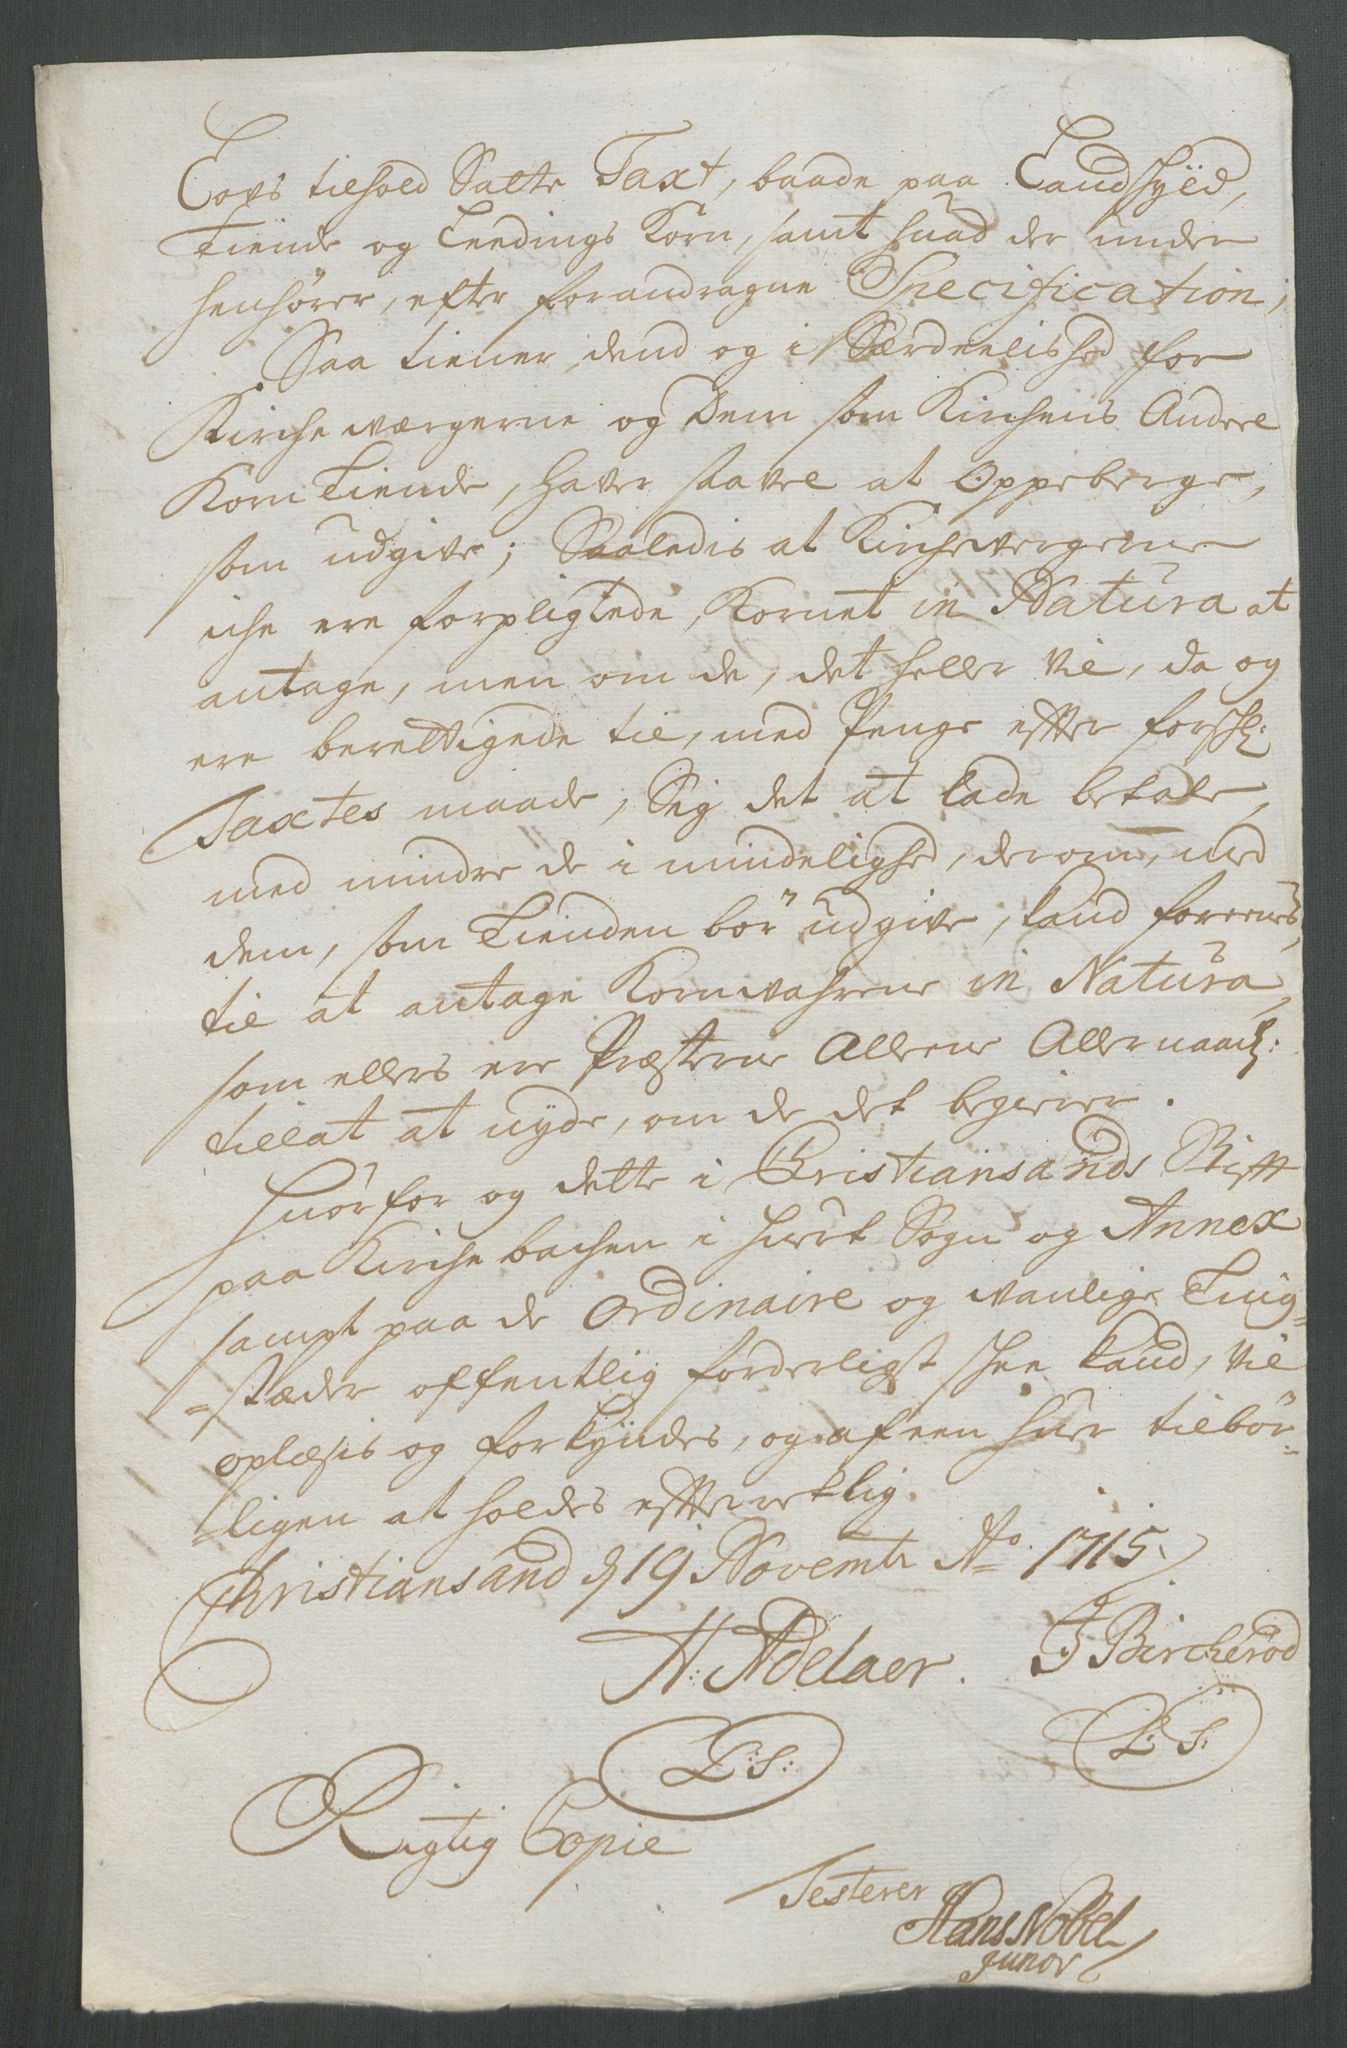 Lovs tilhold Satte Taxt, baade paa Landskyld,
Tiende og Leedings Korn, samt huad der under
henhører, efter forandragne Specification;
Saa tiener dend og i Særdeelished for
Kircheværgerne og Dem som Kirchens Andeel
Korn Tiende, haver saavel at Oppeberge,
som udgive; Saaledis at Kirchevergerne
iche ere forpligtede, Kornet in Natura at
antage, men om de, det heller vil, da og
ere berettigede til, med Penge efter forschr:
Taxtes maade, Sig det at lade betale,
med mindre de i mindelighed, derom, med
dem, som Tienden bør udgive, kand foreenes,
til at antage Kornvahrene in Natura,
som ellers ere Præsterne Alleene Allernaad:
tillat at nyde, om de det begierer.
Huorfor og dette i Christiansands Stift
paa Kirchebachen i huert Sogn og Annex
sampt paa de Ordinaire og vanlige Ting=
=stæder offentlig forderligst skee kand, vil
oplæsis og forkyndes, og af een huer tilbør=
=ligen at holdes efterretlig.
Christiansand d 19 Novembr Ao 1715.
H: Adelaer. J Bircherod
L:S: L:S:
Rigtig Copie
Testerer
Hans Nobel
junor